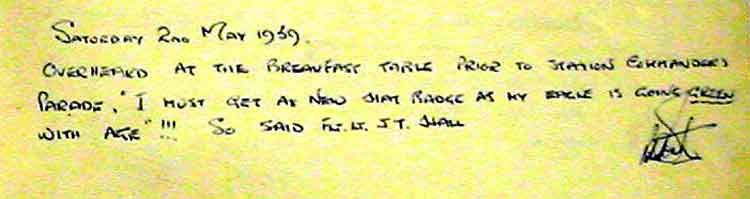 SATURDAY 2ND MAY 1959.
OVERHEARD AT THE BREAKFAST TABLE PRIOR TO STATION COMMANDERS
PARADE, "I MUST GET AS NEW HAT BADGE AS MY EAGLE IS GOING GREEN
WITH AGE"!!! SO SAID FLT. LT. J T. HALL